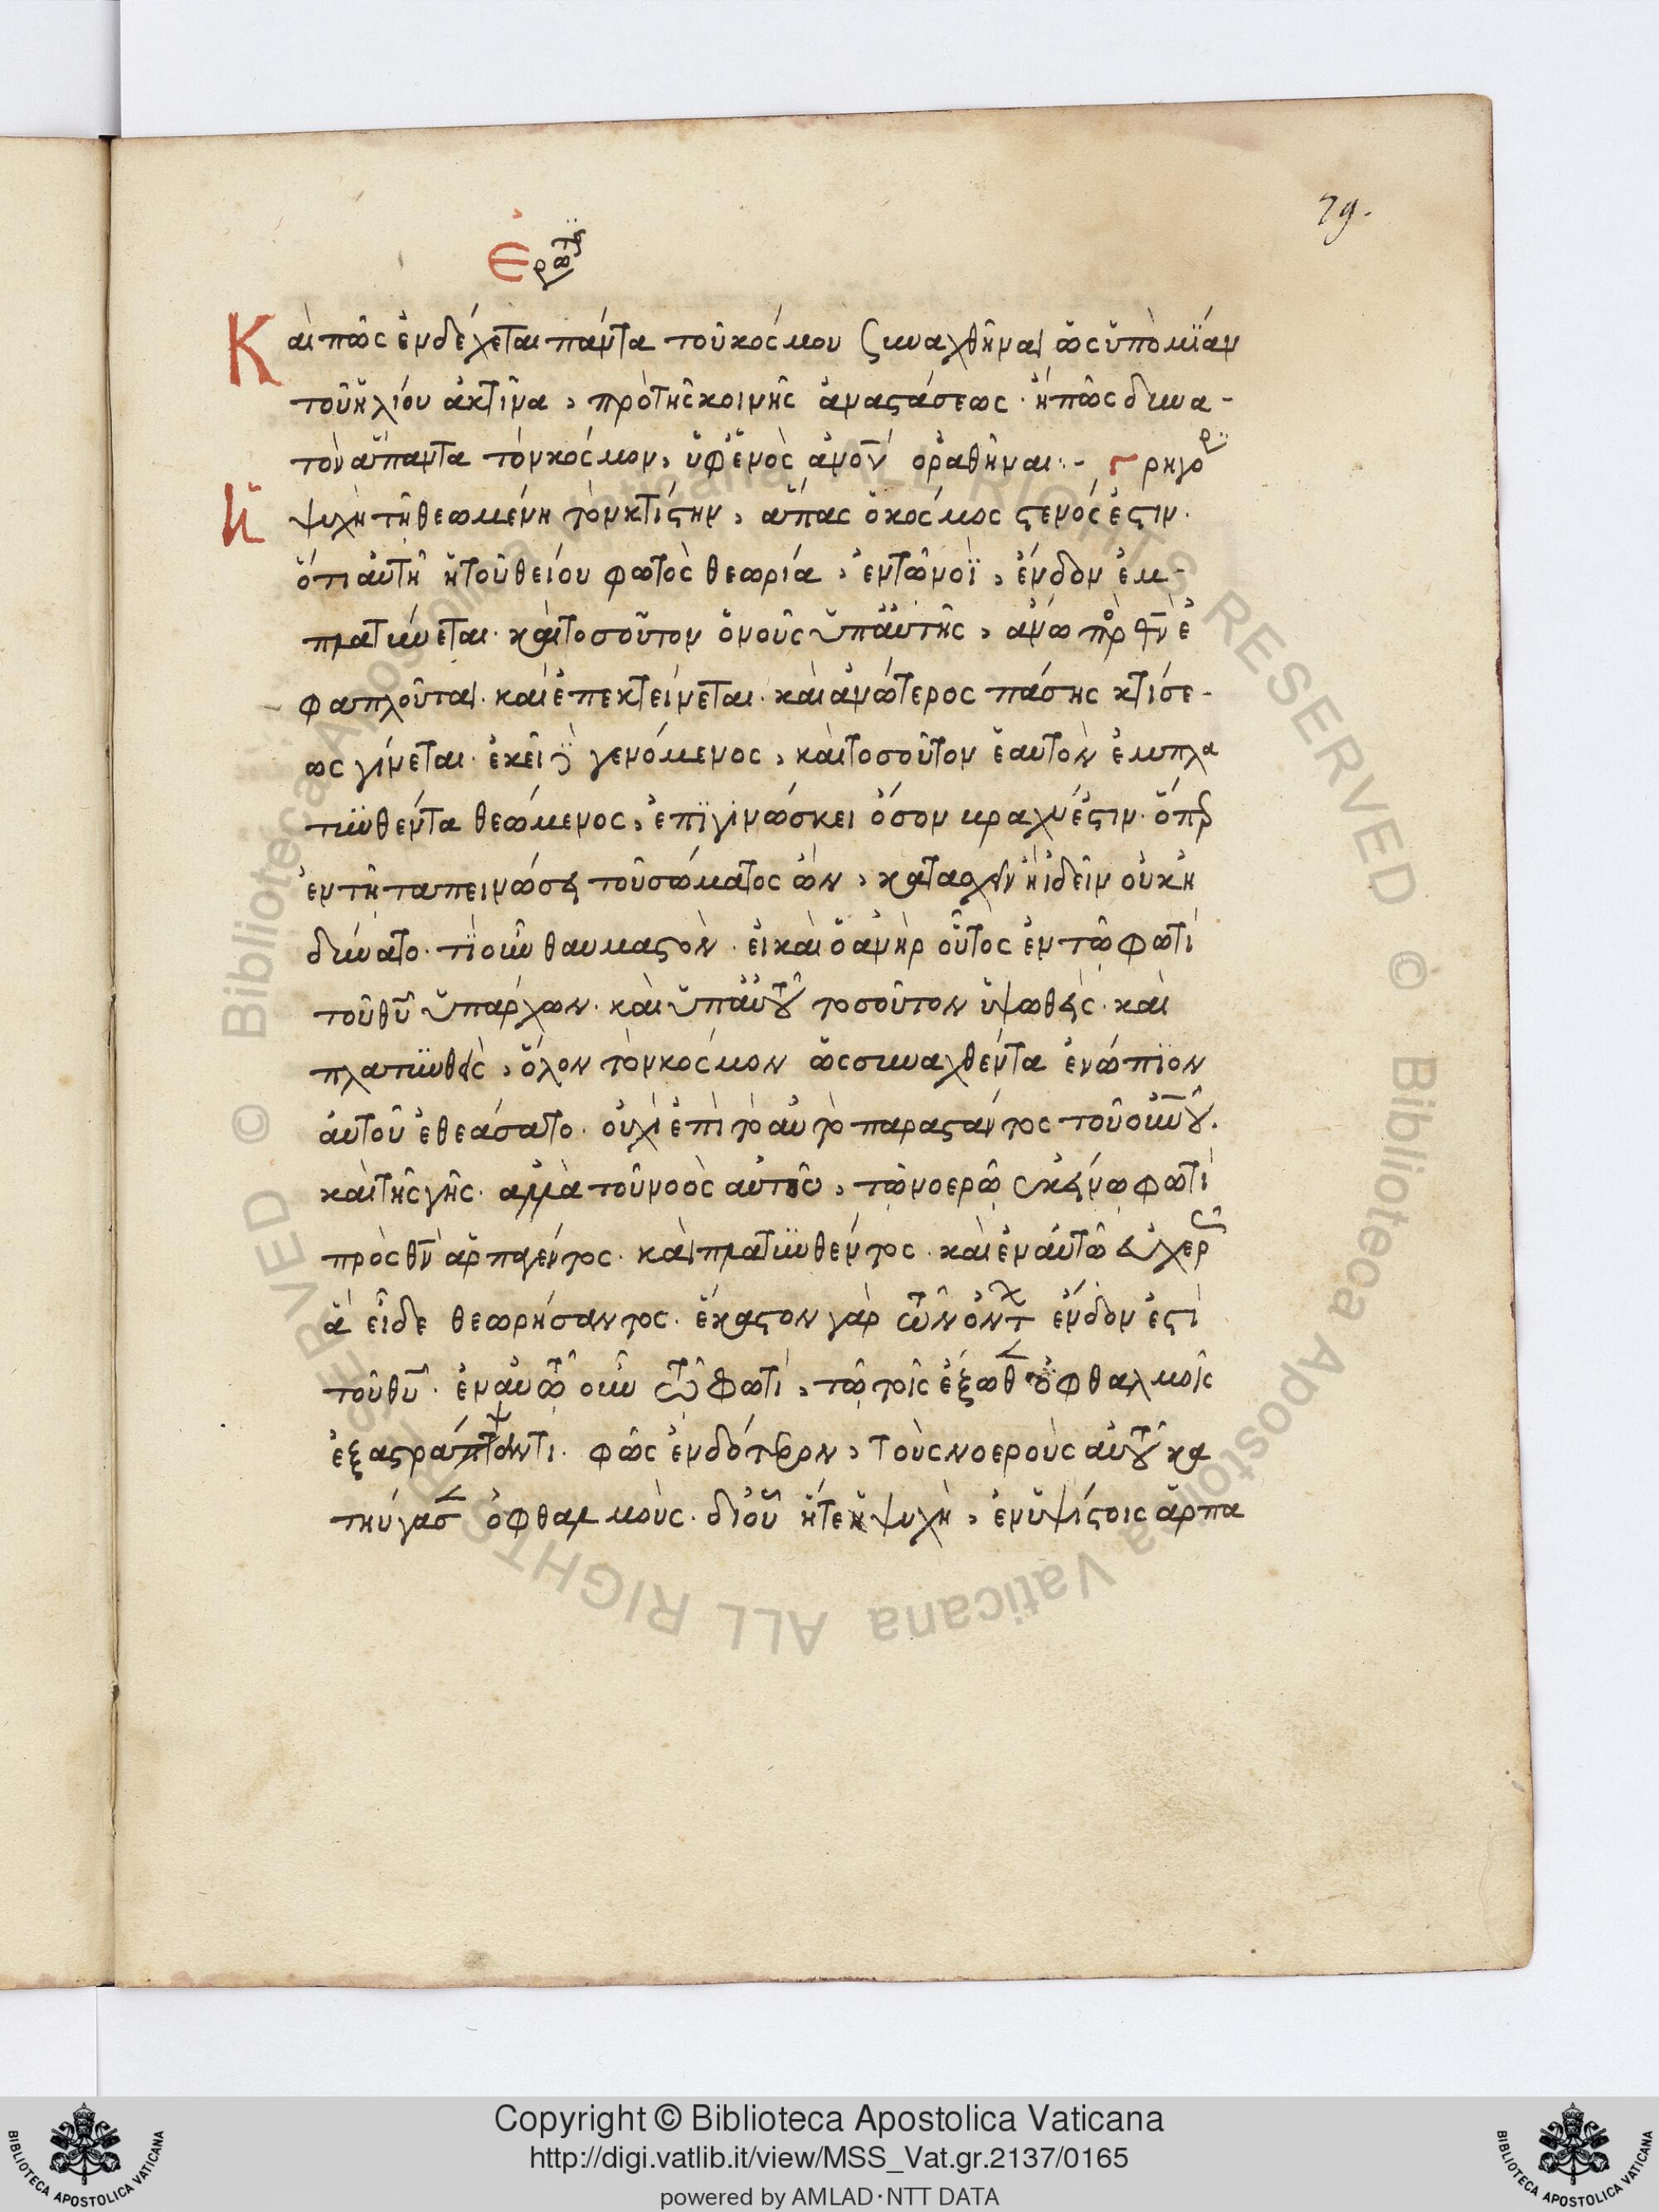 79.
Ἐρώτησις
Καὶ πῶς ἐνδέχεται πάντα τοῦ κόσμου συναχθῆναι ὡς ὑπὸ μίαν
τοῦ ἡλίου ἀκτῖνα, πρὸ τῆς κοινῆς ἀναστάσεως· ἢ πῶς δυνα-
τὸν ἅπαντα τὸν κόσμον, ὑφ' ἑνὸς ἀνο̅υ ὁραθῆναι:- Γρηγορ
Ἡ ψυχῆ τῆ θεωμένη τὸν κτίστην, ἅπας ὁ κόσμος στενός ἐστιν·
ὅτι αὐτῆ ἡ τοῦ θείου φωτὸς θεωρία, ἐν τῶ νοῒ, ἔνδον ἐμ-
πλατύνεται· καὶ τοσοῦτον ὁ νοῦς ὑπ' αὐτῆς, ἄνω πρὸς θν̅ ἐ
φαπλοῦται· καὶ ἐπεκτείνεται· καὶ ἀνώτερος πάσης κτίσε-
ως γίνεται· ἐκεῖ δὲ γενόμενος, καὶ τοσοῦτον ἑαυτὸν ἐμπλα
τυνθέντα θεώμενος, ἐπιγινώσκει ὅσον βραχύ ἐστιν· ὅπερ
ἐν τῆ ταπεινώσει τοῦ σώματος ὢν, κατασχεῖν ἢ ἰδεῖν οὐκ ἠ
δύνατο· τί οὖν θαυμαστὸν· εἰ καὶ ὁ ἀνὴρ οὗτος ἐν τῶ φωτὶ
τοῦ θυ̅ ὑπάρχων· καὶ ὑπ' αὐτοῦ τοσοῦτον ὑψωθεὶς· καὶ
πλατυνθεὶς, ὅλον τὸν κόσμον ὡς συναχθέντα ἐνώπιον
αὐτοῦ ἐθεάσατο· οὐχὶ ἐπὶ τὸ αὐτὸ παραστάντος τοῦ οὐνου̅.
καὶ τῆς γῆς· ἀλλὰ τοῦ νοὸς αὐτοῦ, τῶ νοερῶ ἐκείνω φωτὶ
πρὸς θν̅ ἁρπαγέντος· καὶ πλατυνθέντος· καὶ ἐν αὐτῶ εὐχερῶς
ἃ εἶδε θεωρήσαντος· ἕκαστον γὰρ τῶν ὄντων ἔνδον ἐστὶ
τοῦ θυ̅· ἐν αὐτῶ οὖν τῶ φωτὶ, τῶ τοῖς ἔξωθεν ὀφθαλμοῖς
ἐξαστράψαντι· φῶς ἐνδότερον, τοὺς νοεροὺς αὐτοῦ κα
τηύγασεν ὀφθαλμοὺς· δι' οὗ ἥτε ψυχὴ, ἐν ὑψίστοις ἁρπα
Copyright © Biblioteca Apostolica Vaticana
http://digi.vatlib.it/view/MSS_Vat.gr.2137/0165
powered by AMLAD·NTT DATA